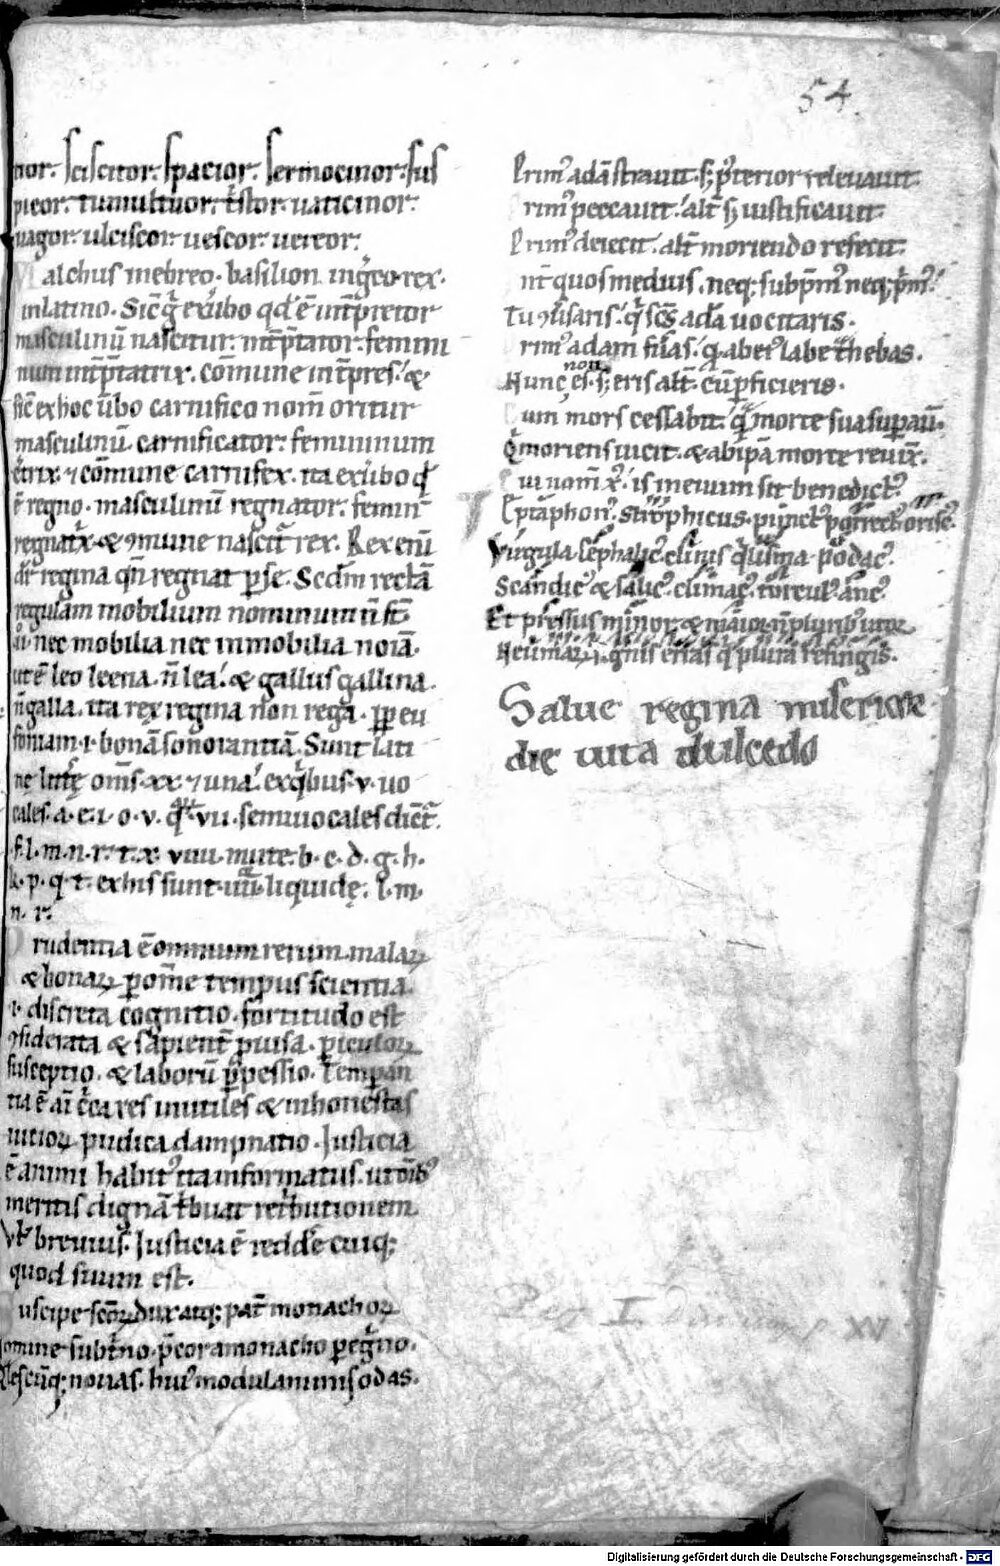 54.
nor. sciscitor. spacior. sermocinor. sus
picor. tumultuor. tͥstor. uaticinor.
uagor. ulciscor. uescor. uereor.
Malchus inebreo. basilion. ingͤco. rex.
inlatino. Sic̄ gͦ exu̍bo qd̕ ē int̄pretor
masculinū nascitur. int̄p̄tator. femini
num int̄p̄tatrix. com̄une int̄pres. &
sic̄ ex hoc u̍bo carnifico nom̄ oritur
masculinū. carnificator. femininum
com̄une carnifex. ita exu̍bo qd̕
ē regno. masculinū regnator. femin̄
regnatͥx. & ꝯmune nascit̄ rex. Rex enī
dr̄ regina qn̄ regnat ꝑse. Scd̄m rectā
regulam mobilium nominum n̄ st̄
nec mobilia nec inmobilia noīa.
ut ē leo leena. n̄ lea. & gallus gallina.
n̄ galla. ita rex regina non rega. ꝓpt̄ eu
foniam .i. bonā sonorantiā. Sunt lati
ne litt̄ę om̄s .xx. ⁊ una. exqͥbus .v. uo
cales. a. e. i. o. v. vii. semiuocales dict̄.
f. l. m. n. r. s. x. viiii. mute. b. c. d. g. h.
k. p. q. t. exhis sunt .iiii. liquidę. l. m.
n. r.
Prudentia ē omnium rerum malaꝝ
& bonaꝝ ꝑ om̄e tempus scientia
.i. discreta cognitio. fortitudo est
ꝯsiderata & sapient̄ puisa. ꝑiculoꝝ
susceptio. & laborū ꝑpessio. Temꝑan
tia ē aī cͥca res inutiles & inhonestas
uitioꝝ pudica dampnatio. Justicia
ē animi habitꝰ ita informatus. ut om̄ibꝰ
meritis dignā tͥbuat retͥbutionem
Vͭ breuius. Justicia ē redde̍ cuiq;
quod suum est.
Suscipe scōꝝ dux atq; pat̄ monachoꝝ
nomine sub tͥno. p̄cor a monacho ꝑegͥno.
novas. huiꝰ modulaminis odas.
Primꝰ adā strauit. s; posterior releuauit.
Primꝰ peccauit. alt̄ s; iustificauit.
Primꝰ deiecit. alt̄ moriendo refecit.
nt̄ quos mediuis. neq; sub pͥmꝰ neq; pͥmꝰ.
Tu ꝯsͥaris. qͥ scs̄ adā uocitaris.
Primꝰ adam fueras. qͥ aberꝰ labe th̄ebas.
Nunc non es. s; eris alt̄. cū ꝑficieris.
Cum mors cessabit. qͣ morte sua suꝑauit.
Qͥ moriens uicit. & ab ipā morte reuix̄.
Cui nom̄ xꝰ. is meiuum sit benedictꝰ.
Epͥtaphonꝰ. strophicus. punctꝰ porrectꝰ oriscꝰ.
Virgula. cephalicꝰ. cliuis qͥlisma. podatꝰ.
Scandicꝰ & salicꝰ. climacꝰ. torculꝰ. ancꝰ.
Et pressus minor. & maior. n̄ pluribꝰ utor
Neumaꝝ signis erras qͥ plura refingis.
Salue regina misericor
die uita dulcedo
XV
Digitalisierung gefördert durch die Deutsche Forschungsgemeinschaft - DFG